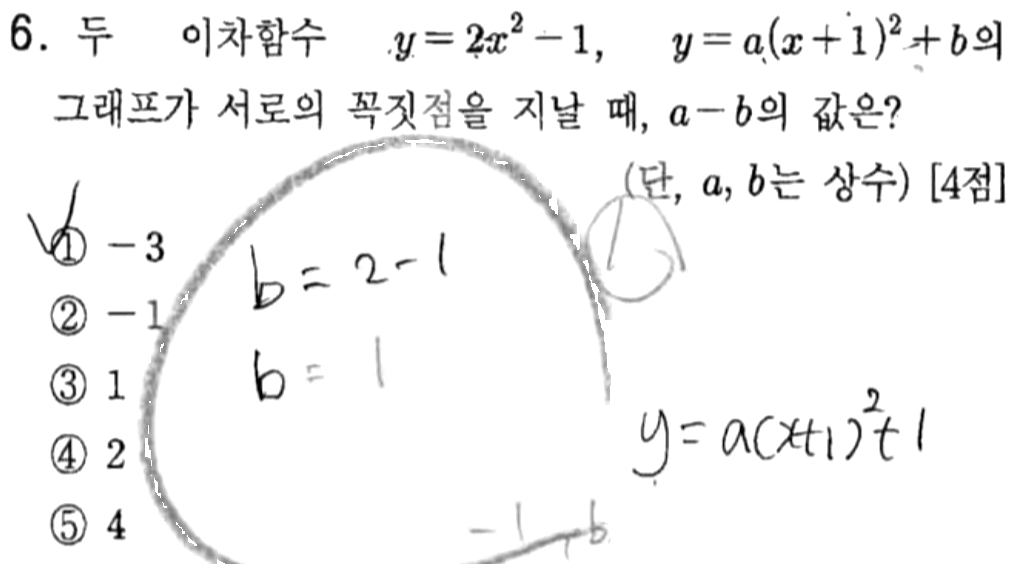 6. 두 이차함수 y=2x²-1, y=a(x+1)²+b의
그래프가 서로의 꼭짓점을 지날 때, a-b의 값은?
(단, a, b는 상수) [4점]
① -3
② -1
③ 1
④ 2
⑤ 4
b=2-1
b=1
y=a(x+1)²+1
-1, b